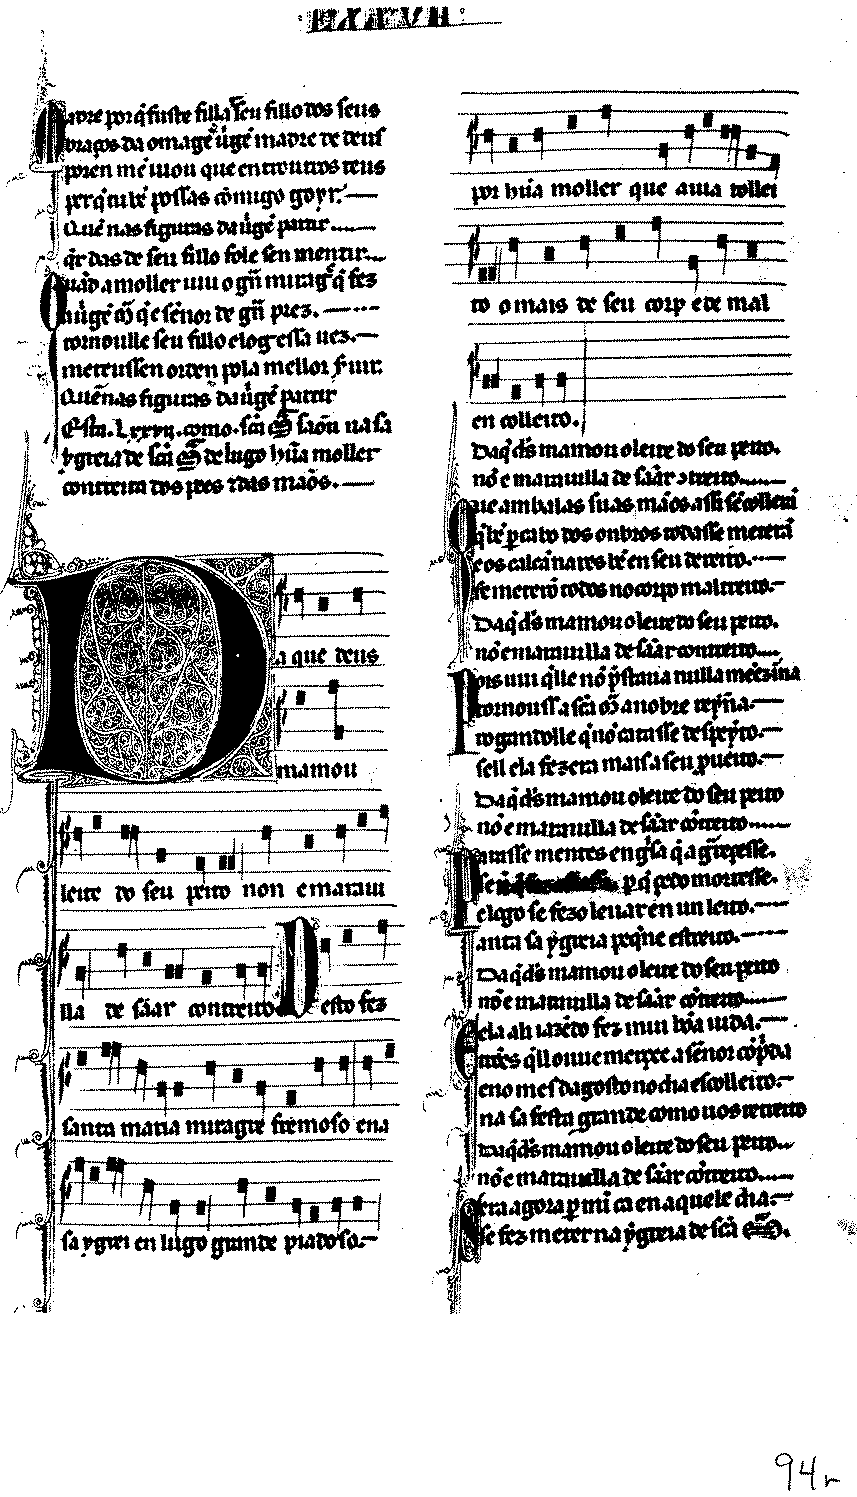 ·LXXVII·
Madre porq̄ fuste filla seu fillo dos seus
braços da omagē ūgē madre de deus
poren mē uiou que entroutros teus
perq̄ tu bē possas cōmigo goyr.
Quē nas figuras da ūgē partir
q̄r das de seu fillo fole sen mentir.
Quādamoller uiu o gñ mirag̃ q̄ fez
a ūgē cō q̄ e sēnor de gñ prez.
tornoulle seu fillo e log essa uez.
meterussen orden pola mellor ſuir.
Quē nas figuras da ūgē partir
Esta .Lxxvii. como .scā .M̃ saōu na sa
ygreia de scā M̃ de lugo hūa moller
contreita dos pees ⁊ das maōs.
Da que deus
mamou
leite do seu peito non e maraui
lla de sāar contreito Desto fez
santa maria miragre fremoso ena
sa ygrei en lugo grande piadoso.
por hūa moller que auia tollei
to o mais de seu corp e de mal
en colleito.
Da q̄ ds̄ mamou o leite do seu peito.
nō e marauilla de sāar ɔtreito.
Que ambalas suas māos assi sē colleitā
q̄ bē p cabo dos onbros todasse meterā
e os calcānares bē en seu dereito.
se meterō todos no corpo maltreito.
Da q̄ ds̄ mamou o leite do seu peito.
nō e marauilla de sāar contreito.
Pois uiu q̄ lle nō p̄staua nulla meezīna
tornouss a scā M̃ a nobre reȳna.
rogandolle q̄ nō catasse despeyto.
sell ela fezera mais a seu pueito.
Da q̄ ds̄ mamou o leite do seu peito
nō e marauilla de sāar cōtreito.
Parasse mentes en g̃sa q̄ a g̃reçesse.
se p q̄ çedo morresse.
e logo se fezo leuar en un leito.
anta sa ygreia peq̄ne estreito.
Da q̄ ds̄ mamou o leite do seu peito
nō e marauilla de sāar cōtreito.
E ela ali iazēdo fez mui bōa uida.
trōes q̄ ll ouue merçee a sēnor cōp̄da
eno mes dagosto no dia escolleito.
na sa festa grande como uos retreito
Da q̄ ds̄ mamou o leite do seu peito..
nō e marauilla de sāar cōtreito.
Sera agora p mī ca en aquele dia.
se fez meter na ygreia de scā M̃.
94r